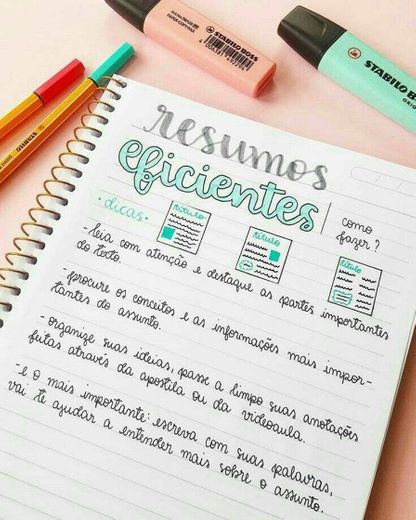 STABILO BOSS
STABILO BOSS
ORIGINAL
resumos
eficientes
• dicas •
título
título
título
como
fazer?
- leia com atenção e destaque as partes importantes
do texto.
- procure os conceitos e as informações mais impor-
tantes do assunto.
- organize suas ideias, passe a limpo suas anotações
feitas através da apostila ou da videoaula.
- e o mais importante: escreva com suas palavras,
vai te ajudar a entender mais sobre o assunto.